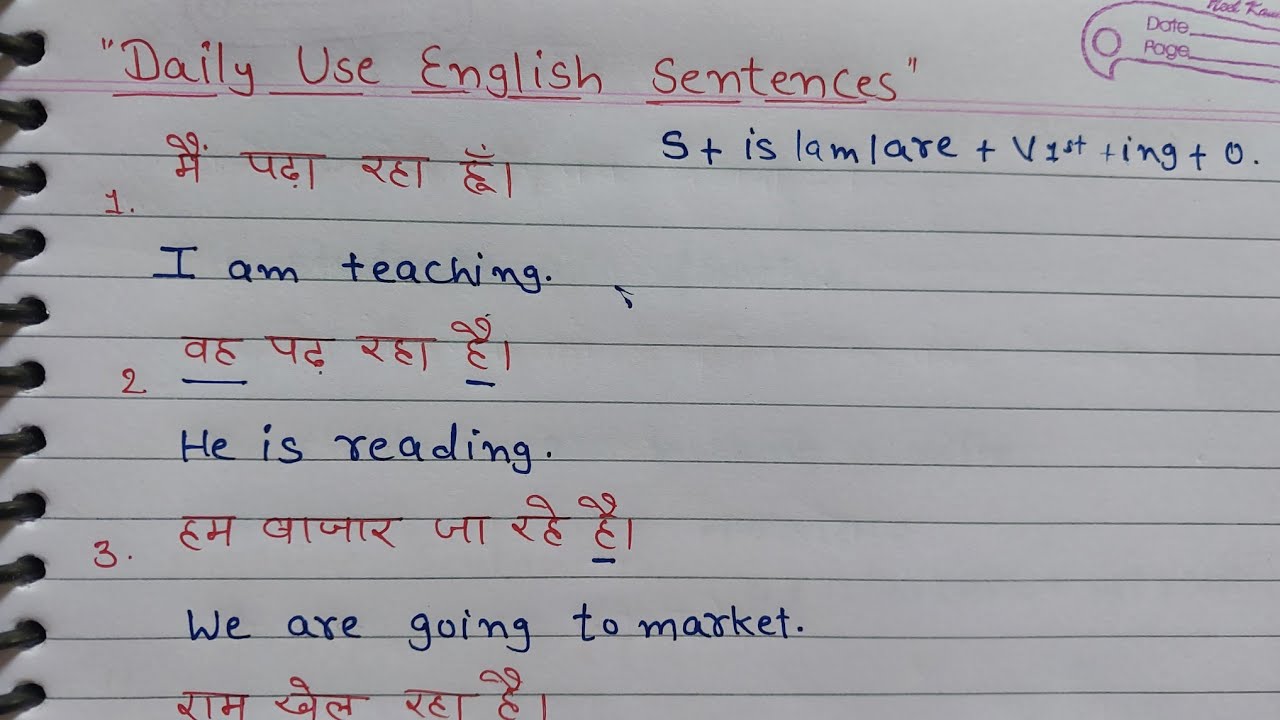 "Daily Use English Sentences"
Date
Page
मैं पढ़ा रहा हूँ।
S + is / am / are + V 1st + ing + O.
1.
I am teaching.
वह पढ़ रहा हैं।
2
He is reading.
हम बाजार जा रहे है।
3.
We are going to market.
राम खेल रहा है।